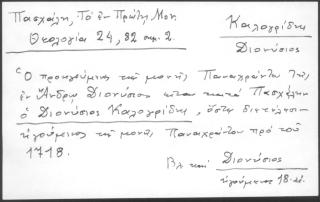 Πασχάλη, Τὸ ἐν Πρώτη, Μον.
Θεολογία 24, 82 σημ. 2.
Καλογρίδης
Διονύσιος
"Ὁ προηγούμενος τῆς μονῆς Παναχράντου τῆς
ἐν Ἄνδρῳ Διονύσιος κατὰ Πασχάλην
ὁ Διονύσιος Καλογρίδης, ὅστις διετέλεσεν
ἡγούμενος τῆς μονῆς Παναχράντου πρὸ τοῦ
1718.
Βλ. καὶ Διονύσιος
ἡγούμενος 18